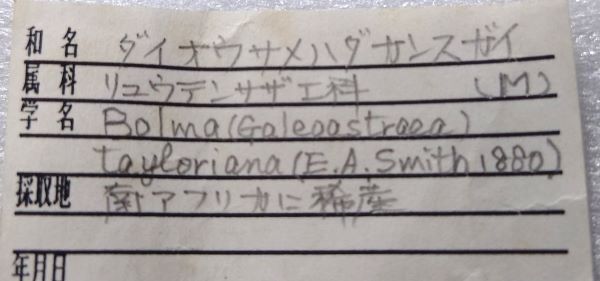 和名 ダイオウサメハダカンスガイ
属科 リュウテンサザエ科 (M)
学名 Bolma (Galeoastraea)
tayloriana (E.A. Smith 1880)
採取地 南アフリカに稀産
年月日